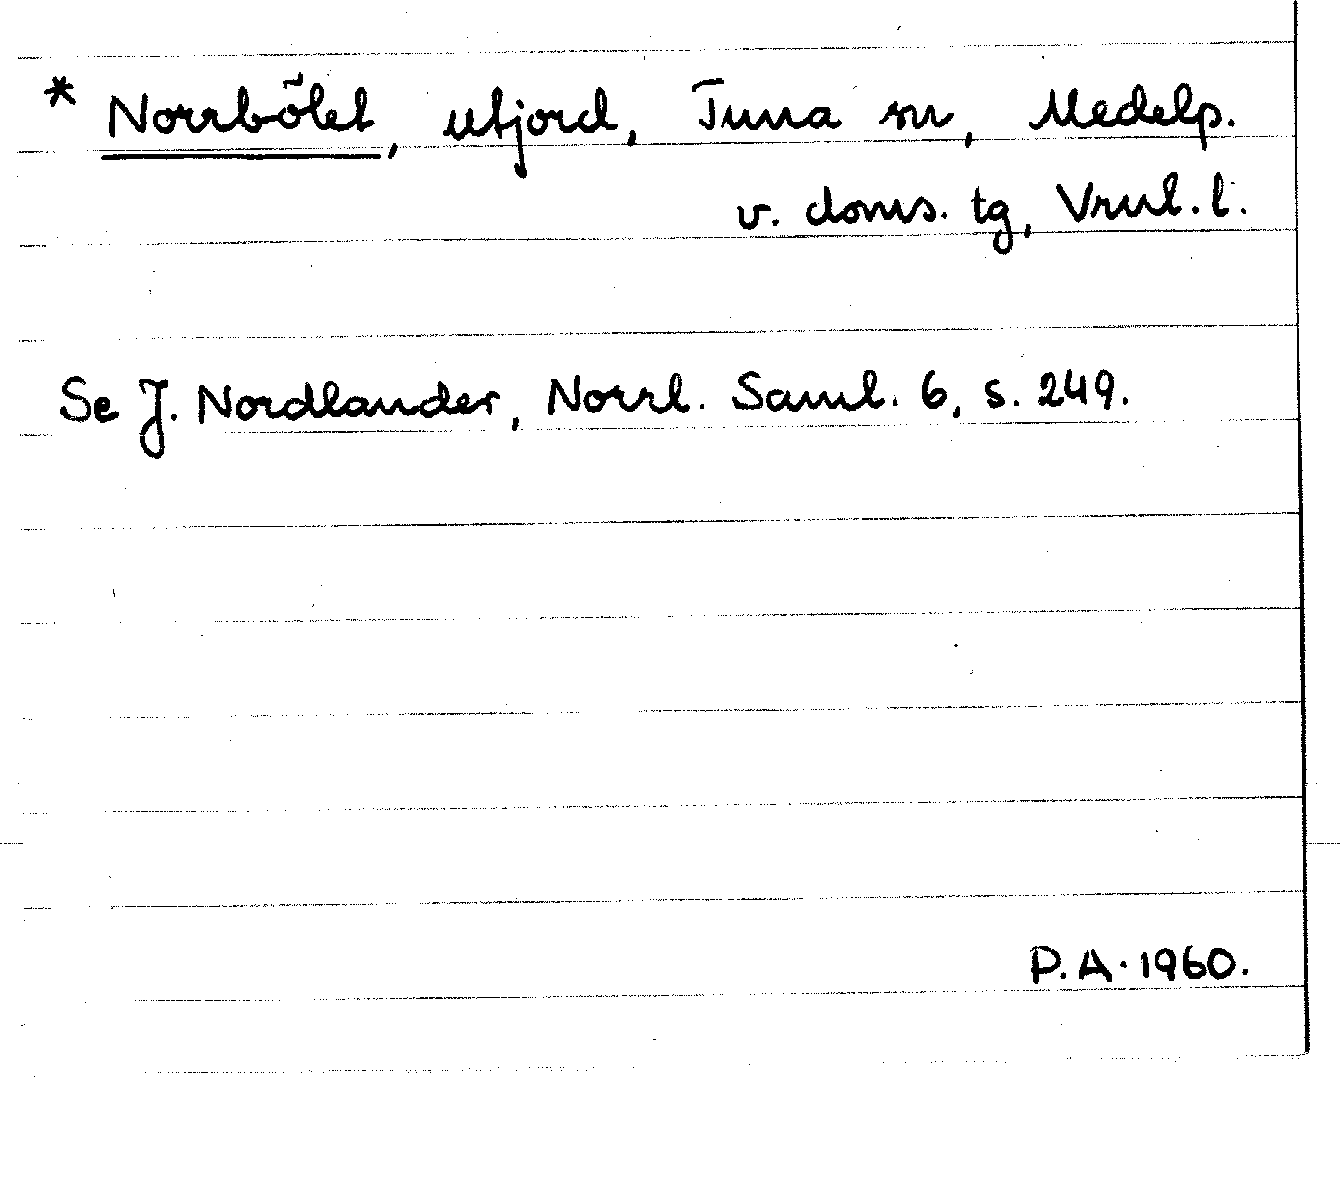 * Norrbölet, utjord, Tuna sn, Medelp.
v. doms. tg, Vrnl. l.
Se J. Nordlander, Norrl. Saml. 6, s. 249.
P. A. 1960.